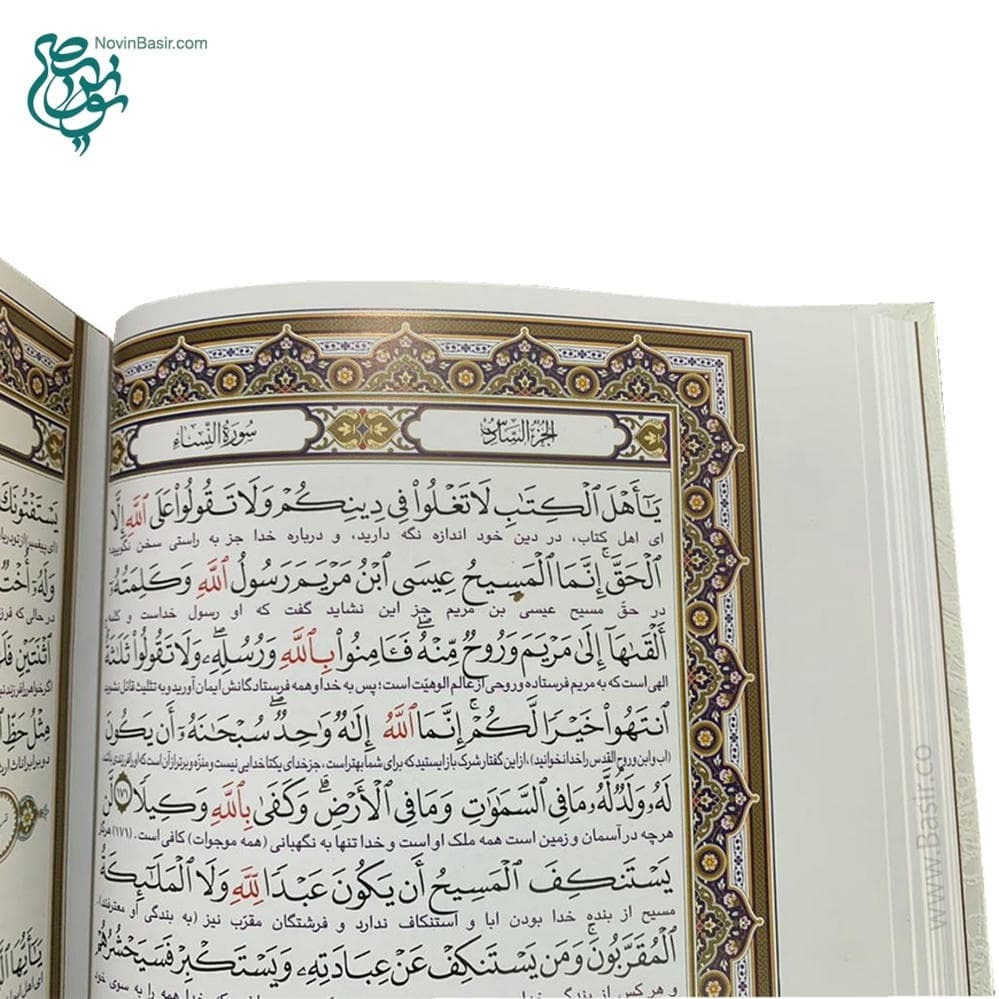 NovinBasir.com
الجزء السادس
سورة النساء
يَـٰٓأَهْلَ ٱلْكِتَـٰبِ لَا تَغْلُوا۟ فِى دِينِكُمْ وَلَا تَقُولُوا۟ عَلَى ٱللَّهِ إِلَّا
ای اهل کتاب، در دین خود اندازه نگه دارید، و درباره خدا جز به راستی سخن نگویید؛
ٱلْحَقَّ ۚ إِنَّمَا ٱلْمَسِيحُ عِيسَى ٱبْنُ مَرْيَمَ رَسُولُ ٱللَّهِ وَكَلِمَتُهُۥٓ
در حقّ مسیح عیسی بن مریم جز این نشاید گفت که او رسول خداست و کلمه
أَلْقَىٰهَآ إِلَىٰ مَرْيَمَ وَرُوحٌ مِّنْهُ ۖ فَـَٔامِنُوا۟ بِٱللَّهِ وَرُسُلِهِۦ ۖ وَلَا تَقُولُوا۟ ثَلَـٰثَةٌ
الهی است که به مریم فرستاده و روحی از عالم الوهیّت است؛ پس به خدا و همه فرستادگانش ایمان آورید و به تثلیث قائل نشوید
ٱنتَهُوا۟ خَيْرًا لَّكُمْ ۚ إِنَّمَا ٱللَّهُ إِلَـٰهٌ وَٰحِدٌ ۖ سُبْحَـٰنَهُۥٓ أَن يَكُونَ
(اب و ابن و روح القدس را خدا نخوانید)، از این گفتار شرک باز ایستید که برای شما بهتر است، جز خدای یکتا خدایی نیست و منزّه و برتر از آن است که او را فرزندی باشد،
لَهُۥ وَلَدٌ ۘ لَّهُۥ مَا فِى ٱلسَّمَـٰوَٰتِ وَمَا فِى ٱلْأَرْضِ ۗ وَكَفَىٰ بِٱللَّهِ وَكِيلًا ۝١٧١ لَّن
هرچه در آسمان و زمین است همه ملک او است و خدا تنها به نگهبانی (همه موجودات) کافی است. (۱۷۱) هرگز
يَسْتَنكِفَ ٱلْمَسِيحُ أَن يَكُونَ عَبْدًا لِّلَّهِ وَلَا ٱلْمَلَـٰٓئِكَةُ
مسیح از بنده خدا بودن ابا و استنکاف ندارد و فرشتگان مقرّب نیز (به بندگی او معترفند).
ٱلْمُقَرَّبُونَ ۚ وَمَن يَسْتَنكِفْ عَنْ عِبَادَتِهِۦ وَيَسْتَكْبِرْ فَسَيَحْشُرُهُمْ
و هر کس از بندگی خدا که خدا همه را به سوی خود
يَسْتَفْتُونَكَ
(ای پیغمبر) از تو درباره
وَلَهُۥٓ أُخْتٌ
در حالی که فرزند
ٱثْنَتَيْنِ
مِثْلُ حَظِّ
دو برابر اناث
يَـٰٓأَيُّهَا
www.Basir.co